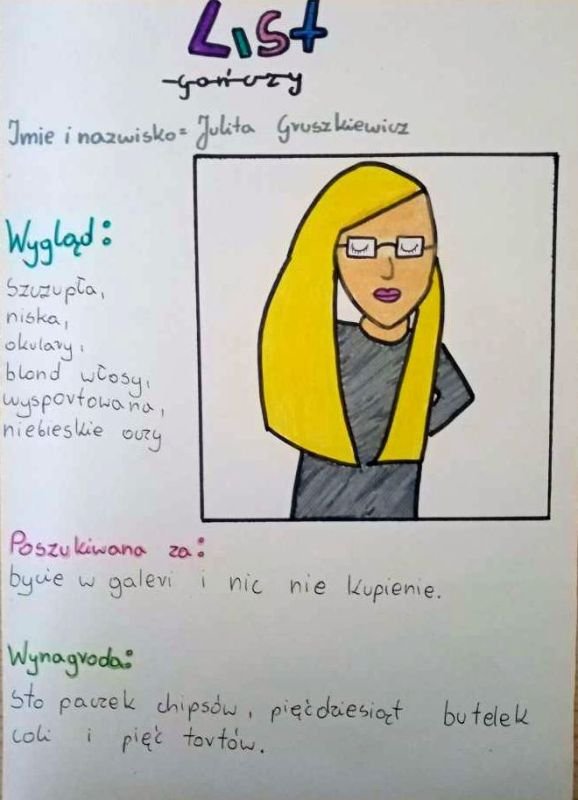 List
gończy
Imie i nazwisko= Julita Gruszkiewicz
Wygląd:
Szczupła,
niska,
okulary,
blond włosy,
wysportowana,
niebieskie oczy
Poszukiwana za:
bycie w galerii i nic nie kupienie.
Wynagroda:
Sto paczek chipsów, pięćdziesiąt butelek
coli i pięć tortów.